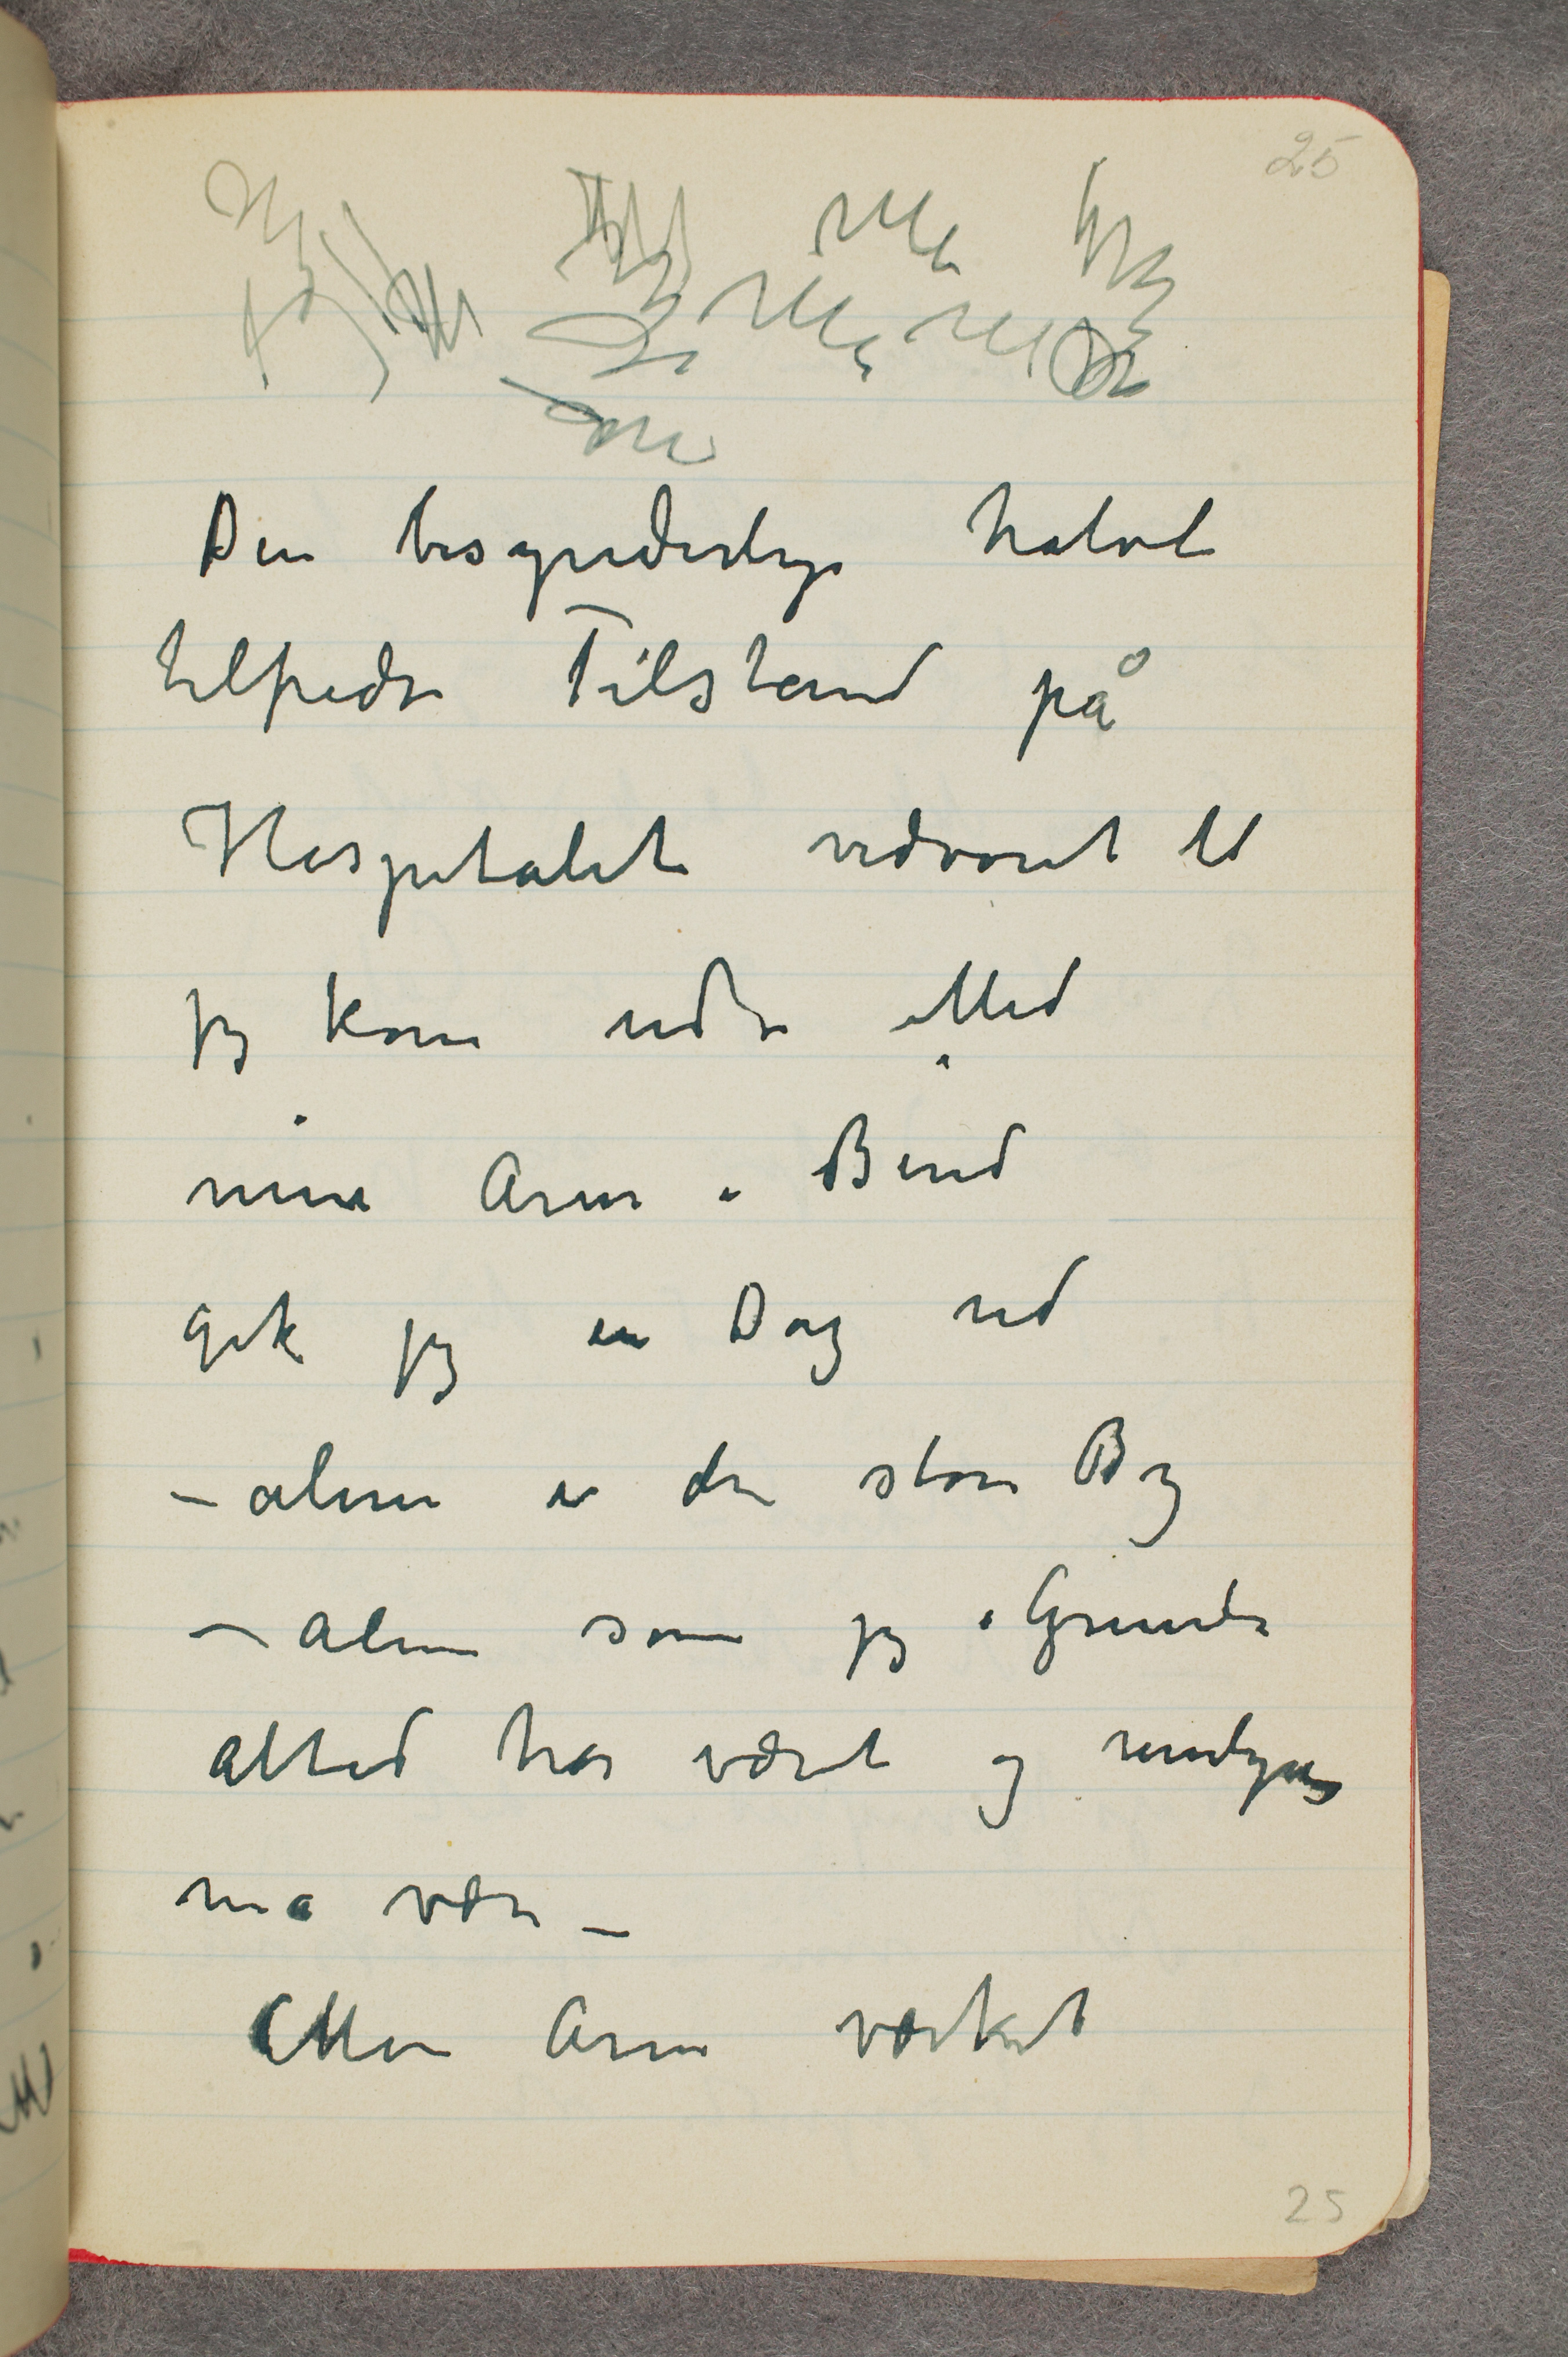 25
Den besynderlige halvt
tilfredse Tilstand på
Hospitalet vedvaret til
jeg kom ud Med
min Arm i Bind
gik jeg en Dag ud
– alene i den store By
– alene som jeg i Grunde
altid har været og rimeligvis
må være –
Min Arm værket
25